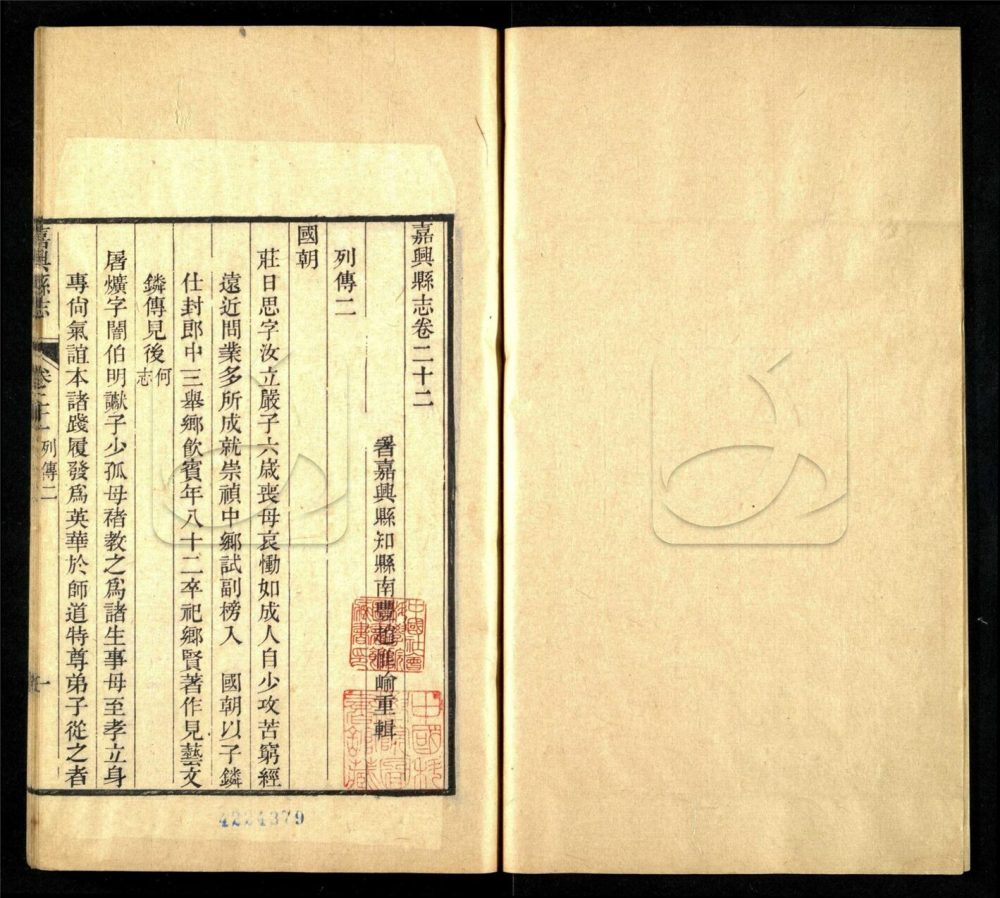 嘉興縣志卷二十二
署嘉興縣知縣南豐趙惟崳重輯
列傳二
國朝
莊日思字汝立嚴子六歲喪母哀慟如成人自少攻苦窮經
遠近問業多所成就崇禎中鄉試副榜入　國朝以子鏻
仕封郎中三舉鄉飲賓年八十二卒祀鄉賢著作見藝文
鏻傳見後何志
屠爌字闇伯明讞子少孤母豬教之爲諸生事母至孝立身
專尙氣誼本諸踐履發爲英華於師道特尊弟子從之者
嘉興縣志
列傳二
一
4224379